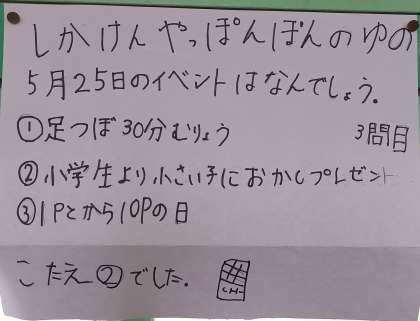 しかけんやっぽんぽんのゆの
5月25日のイベントはなんでしょう。
①足つぼ30分むりょう
3問目
②小学生より小さい子におかしプレゼント
③1Pとから10Pの日
こたえ②でした.